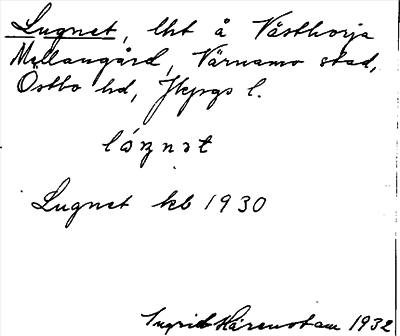 Lugnet, lht å Västhorja
Mellangård, Värnamo stad,
Östbo hd, Jkpgs l.
lóŋnət
Lugnet kb 1930
Ingrid Härenstam 1932